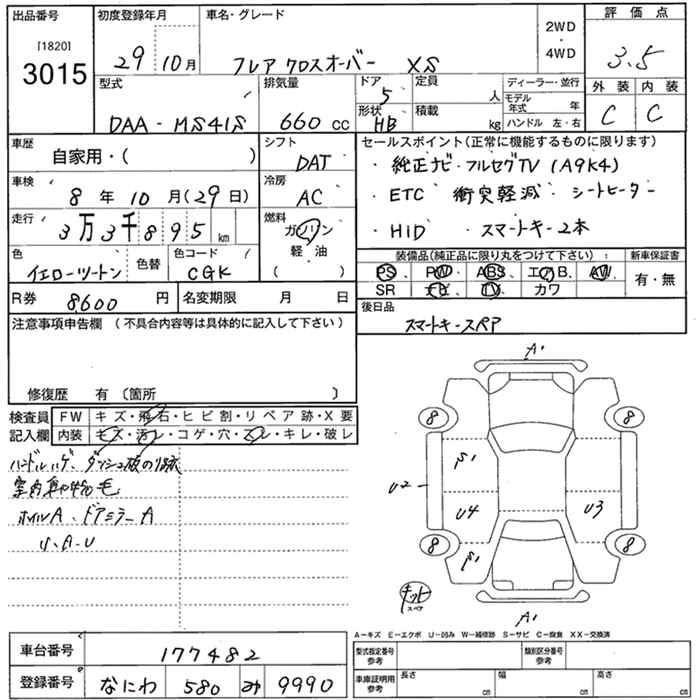 出品番号 初度登録年月 車名・グレード 2WD・4WD 評価点
[1820]
3015 29 10月 フレア クロスオーバー XS 3.5
型式 排気量 ドア 定員 ディーラー・並行 外装 内装
DAA-MS41S 660 cc 5 人 モデル年式 年 C C
形状 HB 積載 kg ハンドル 左・右
車歴 シフト セールスポイント(正常に機能するものに限ります)
自家用・( ) DAT ・純正ナビ・フルセグTV (A9K4)
車検 冷房 ・ETC 衝突軽減・シートヒーター
8年 10月(29日) AC ・HID ・スマートキー2本
走行 燃料
3万3千895km ガソリン
軽・油
( )
装備品(純正品に限り丸をつけて下さい) 新車保証書
PS、PW、ABS、エアB、AW 有・無
SR ナビ、TV、カワ
色 色替 色コード
イエローツートン CGK
R券 8600円 名変期限 月 日
後日品
スマートキースペア
注意事項申告欄(不具合内容等は具体的に記入して下さい)
修復歴 有〔箇所 〕
検査員記入欄 FW キズ・飛石・ヒビ割・リペア跡・X要
内装 キズ・汚レ・コゲ・穴・スレ・キレ・破レ
ハンドルハゲ、ダッシュ板の跡
室内
ホイルA、ドアミラーA
小A-U
A
8 8
S U2 U4 U3
8 8
S
キット
スペア
A
A-キズ E-エクボ U-凹み W-補修跡 S-サビ C-腐食 XX-交換済
車台番号 177482
登録番号 なにわ 580 み 9990
型式指定番号 参考 類別区分番号 参考
車庫証明用 参考 長さ cm 幅 cm 高さ cm